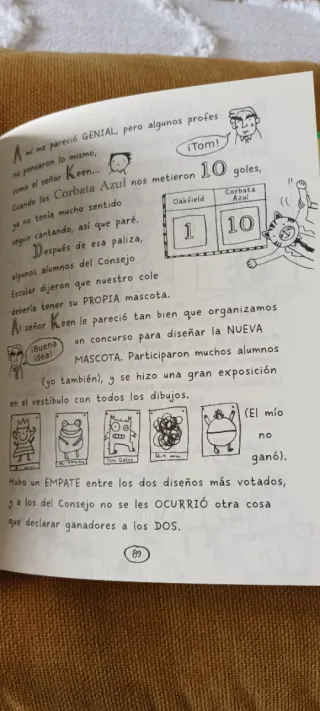 A mí me pareció GENIAL, pero algunos profes
no pensaron lo mismo,
como el señor Keen...
¡Tom!
Cuando los Corbata Azul nos metieron 10 goles,
ya no tenía mucho sentido
seguir cantando, así que paré.
Oakfield
Corbata Azul
1
10
Después de esa paliza,
algunos alumnos del Consejo
Escolar dijeron que nuestro cole
debería tener su PROPIA mascota.
Al señor Keen le pareció tan bien que organizamos
¡Buena idea!
un concurso para diseñar la NUEVA
MASCOTA. Participaron muchos alumnos
(yo también), y se hizo una gran exposición
en el vestíbulo con todos los dibujos.
Tom Gates
(El mío
no
ganó).
Hubo un EMPATE entre los dos diseños más votados,
y a los del Consejo no se les OCURRIÓ otra cosa
que declarar ganadores a los DOS.
89